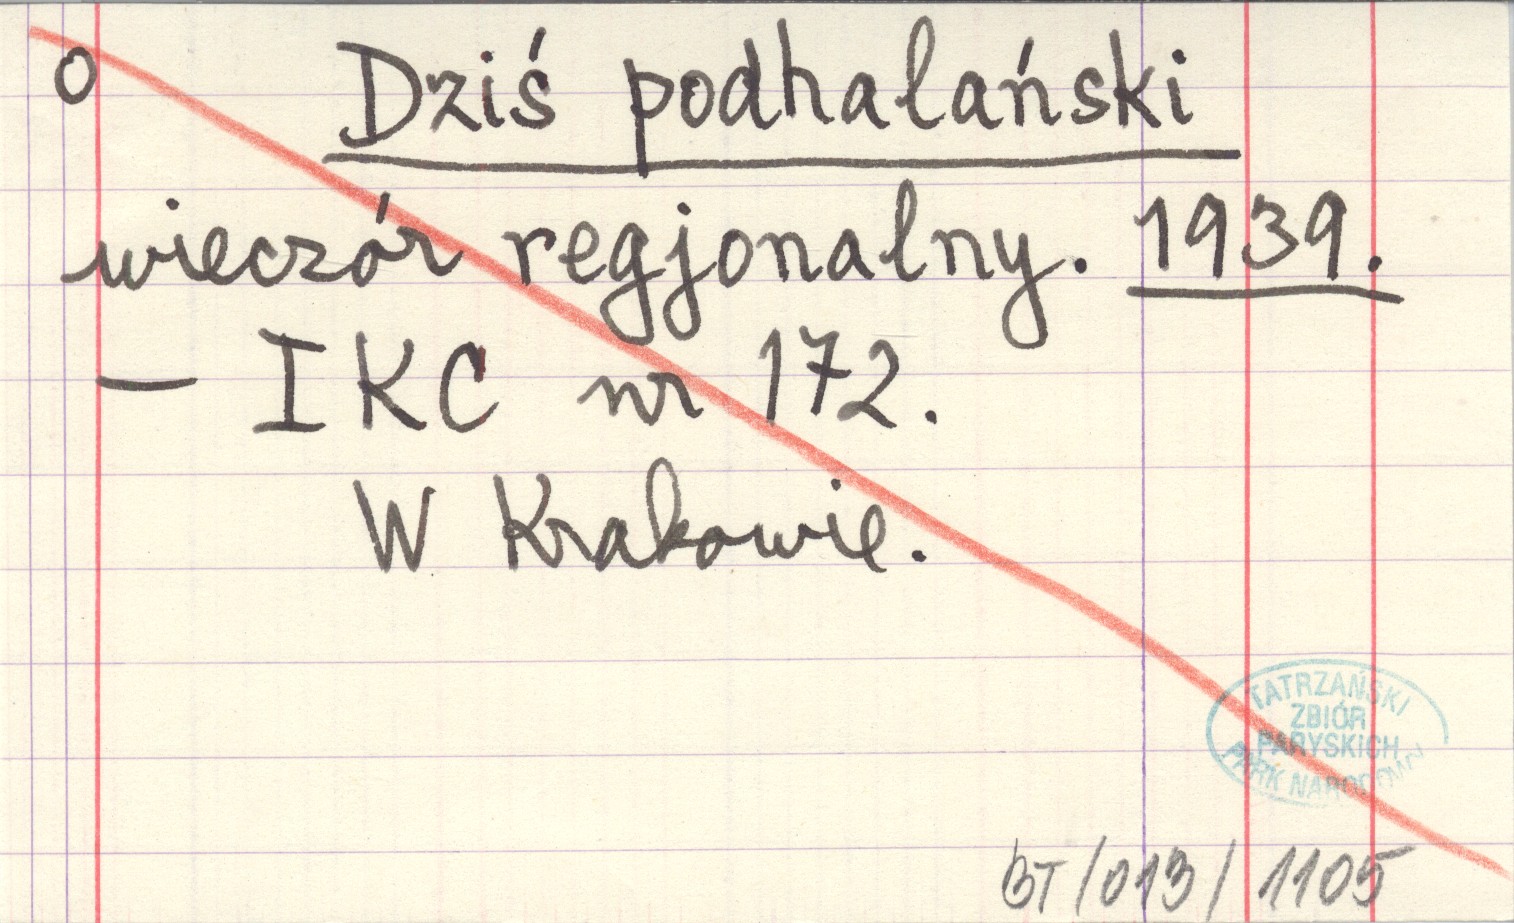 o Dziś podhalański
wieczór regjonalny. 1939.
— IKC nr 172.
W Krakowie.
TATRZAŃSKI
ZBIÓR
PARYSKICH
PARK NARODOWY
BT/013/1105